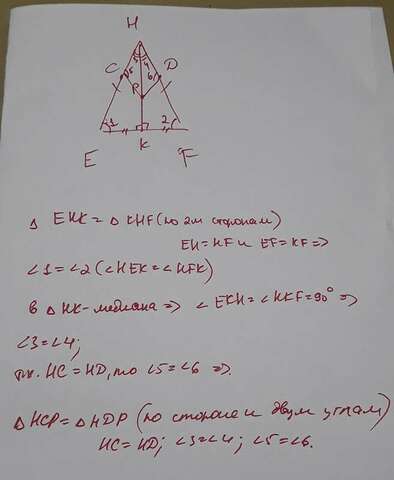 H
C D
5 3 4 6
P
1 2
E K F
Δ EHK = Δ KHF (по 2м сторонам)
EH = HF и EF = KF =>
∠1 = ∠2 (∠HEK = ∠HFK)
в Δ HK - медиана => ∠EKH = ∠HKF = 90° =>
∠3 = ∠4;
т.к. HC = HD, то ∠5 = ∠6 =>.
Δ HCP = Δ HDP (по стороне и двум углам)
HC = HD; ∠3 = ∠4; ∠5 = ∠6.